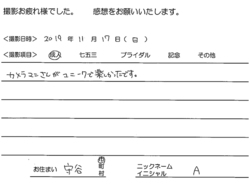 撮影お疲れ様でした。 感想をお願いいたします。
<撮影日時> 2019 年 11 月 17 日 (日)
<撮影項目> 成人 七五三 ブライダル 記念 その他
カメラマンさんがユニークで楽しかったです。
お住まい 守谷 市 町 村 ニックネーム イニシャル A